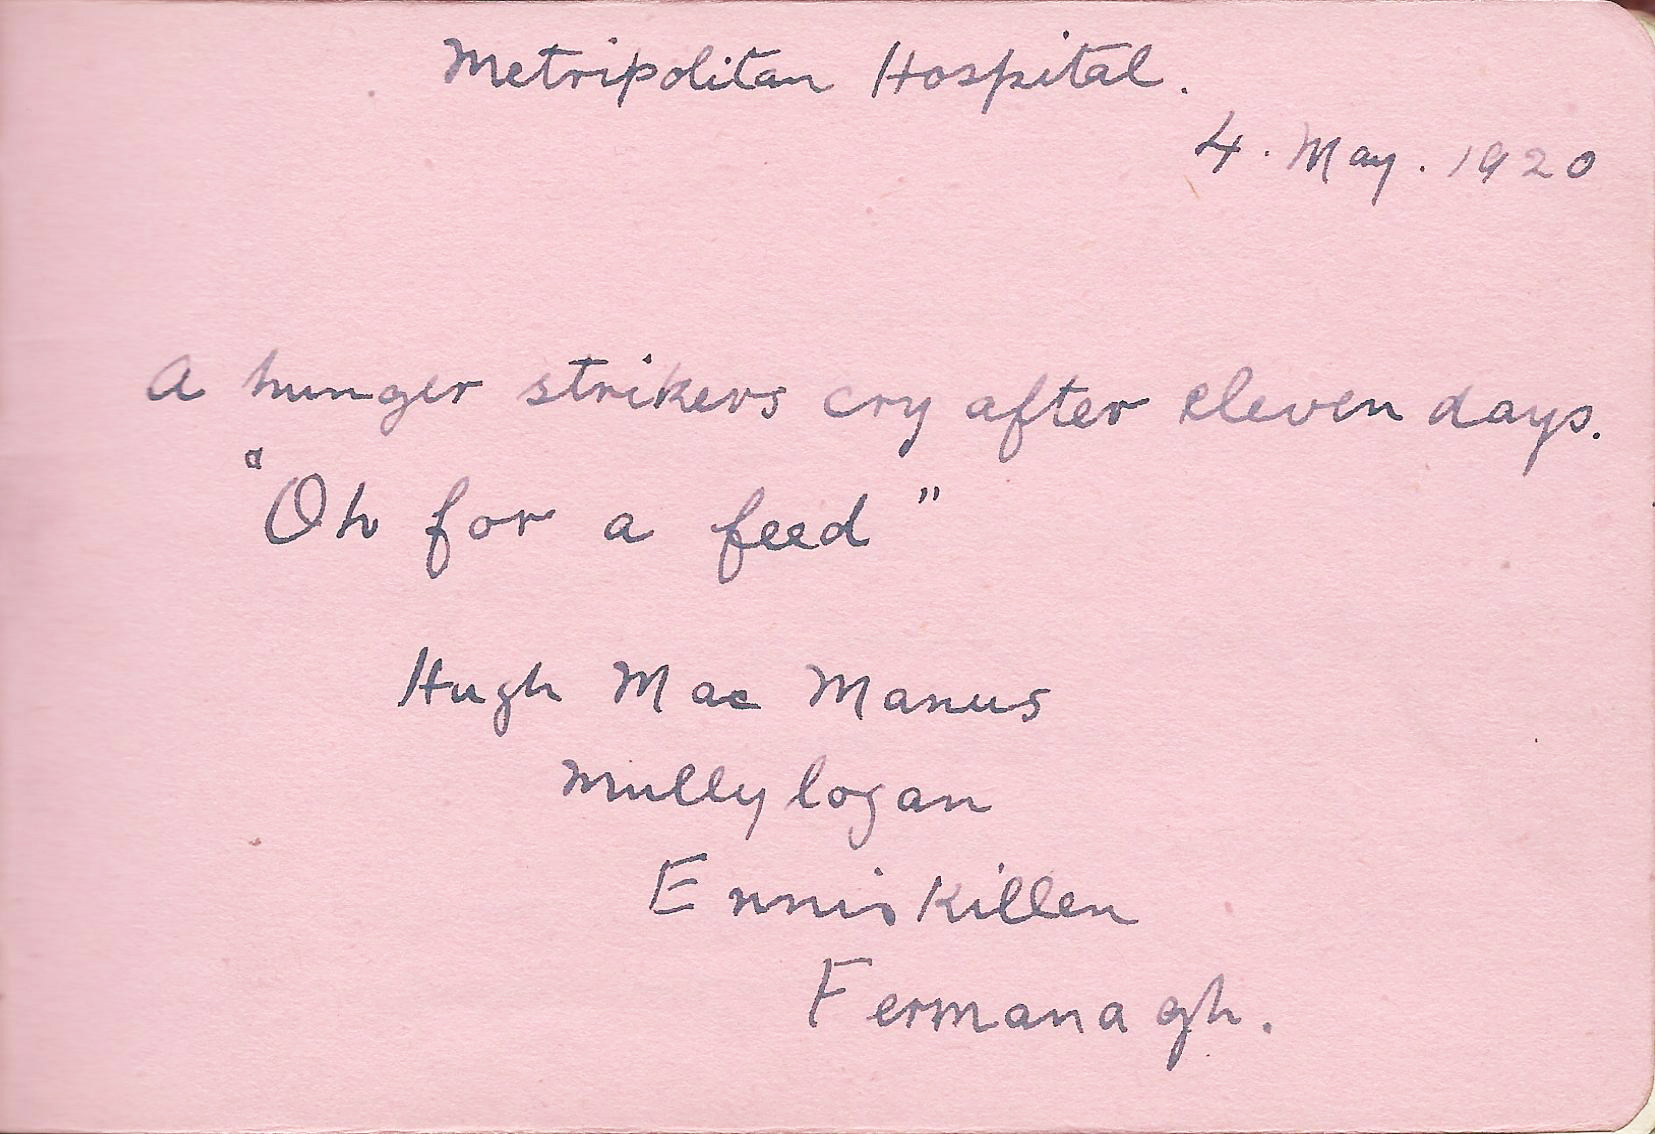 Metripolitan Hospital.
4. May. 1920
A hunger strikers cry after eleven days.
"Oh for a feed"
Hugh Mac Manus
Mullylogan
Enniskillen
Fermanagh.